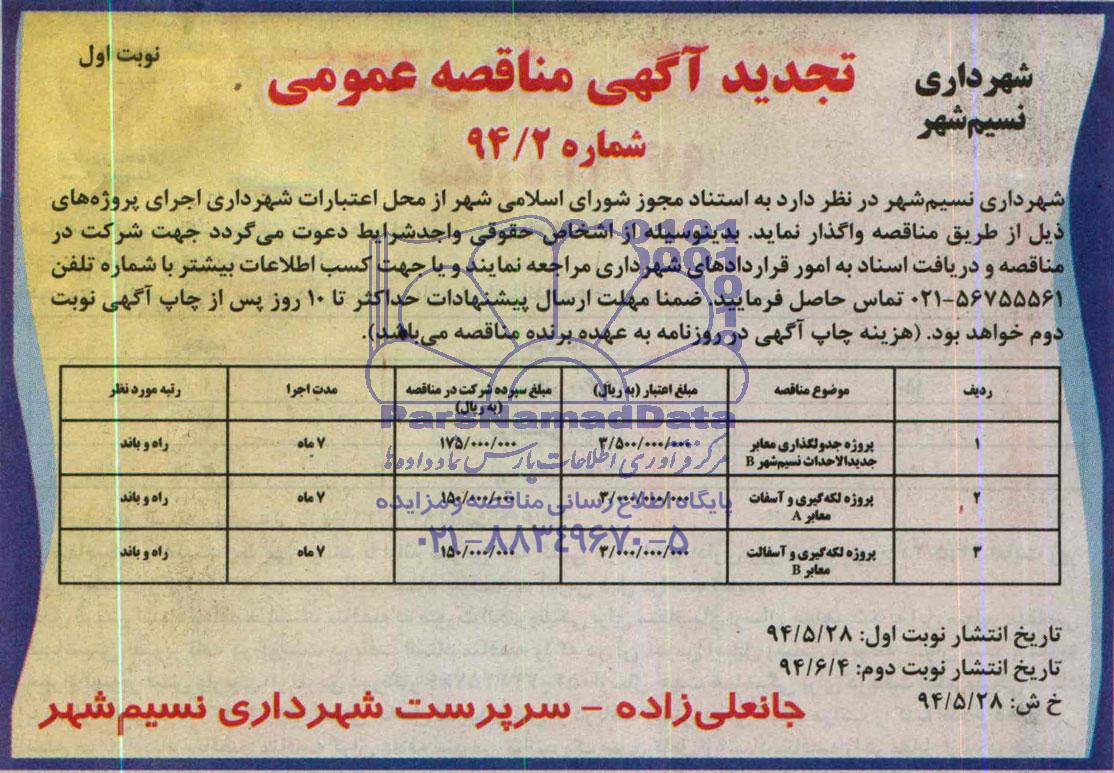 نوبت اول
شهرداری
نسیم‌شهر
تجدید آگهی مناقصه عمومی
شماره ۹۴/۲
شهرداری نسیم‌شهر در نظر دارد به استناد مجوز شورای اسلامی شهر از محل اعتبارات شهرداری اجرای پروژه‌های
ذیل از طریق مناقصه واگذار نماید. بدینوسیله از اشخاص حقوقی واجدشرایط دعوت می‌گردد جهت شرکت در
مناقصه و دریافت اسناد به امور قراردادهای شهرداری مراجعه نمایند و یا جهت کسب اطلاعات بیشتر با شماره تلفن
۰۲۱-۵۶۷۵۵۵۶۱ تماس حاصل فرمایید. ضمنا مهلت ارسال پیشنهادات حداکثر تا ۱۰ روز پس از چاپ آگهی نوبت
دوم خواهد بود. (هزینه چاپ آگهی در روزنامه به عهده برنده مناقصه می‌باشد).
ردیف موضوع مناقصه مبلغ اعتبار (به ریال) مبلغ سپرده شرکت در مناقصه (به ریال) مدت اجرا رتبه مورد نظر
۱ پروژه جدولگذاری معابر جدیدالاحداث نسیم‌شهر B ۳/۵۰۰/۰۰۰/۰۰۰ ۱۷۵/۰۰۰/۰۰۰ ۷ ماه راه و باند
۲ پروژه لکه‌گیری و آسفات معابر A ۳/۰۰۰/۰۰۰/۰۰۰ ۱۵۰/۰۰۰/۰۰۰ ۷ ماه راه و باند
۳ پروژه لکه‌گیری و آسفالت معابر B ۳/۰۰۰/۰۰۰/۰۰۰ ۱۵۰/۰۰۰/۰۰۰ ۷ ماه راه و باند
ParsNamadData
مرکز فرآوری اطلاعات پارس نماد داده‌ها
پایگاه اطلاع رسانی مناقصه و مزایده
۰۲۱-۸۸۳۴۹۶۷۰-۵
تاریخ انتشار نوبت اول: ۹۴/۵/۲۸
تاریخ انتشار نوبت دوم: ۹۴/۶/۴
خ ش: ۹۴/۵/۲۸
جانعلی‌زاده - سرپرست شهرداری نسیم‌شهر